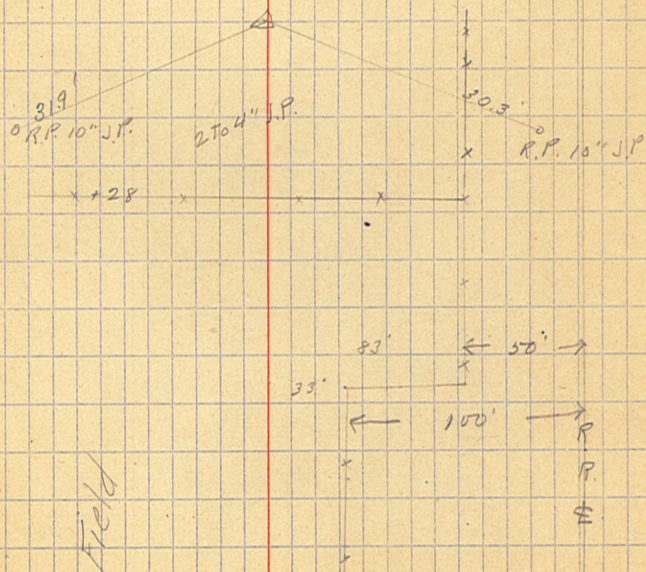 31.9'
R.P. 10" J.P.
2 to 4" J.P.
30.3'
R.P. 10" J.P
+28
83'
50'
33'
100'
R
R
℄
Field